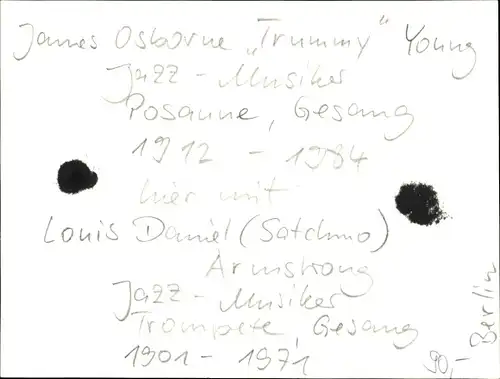 James Osborne „Trummy“ Young
Jazz - Musiker
Posaune, Gesang
1912 - 1984
hier mit
Louis Daniel (Satchmo)
Armstrong
Jazz - Musiker
Trompete, Gesang
1901 - 1971
90,- Berlin